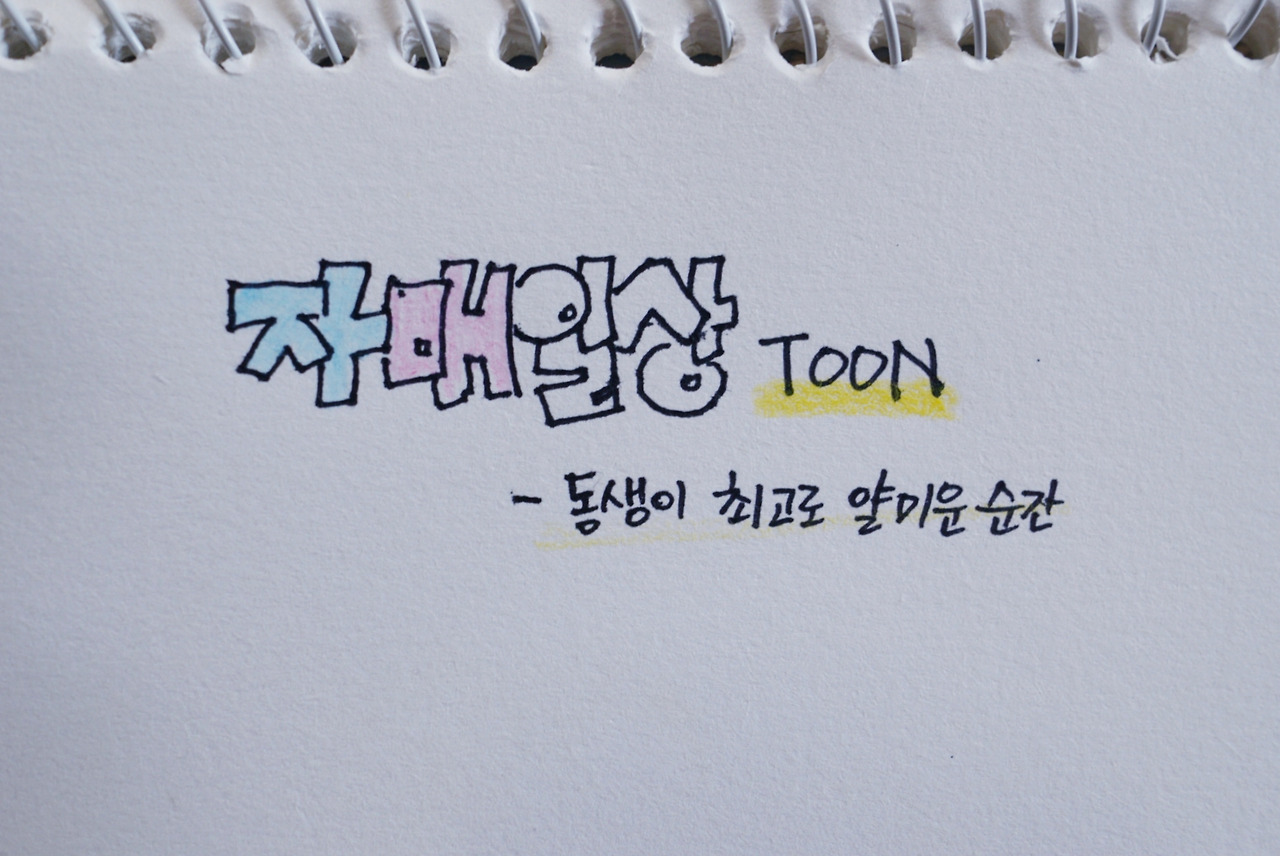 자매일상 TOON
- 동생이 최고로 얄미운 순간